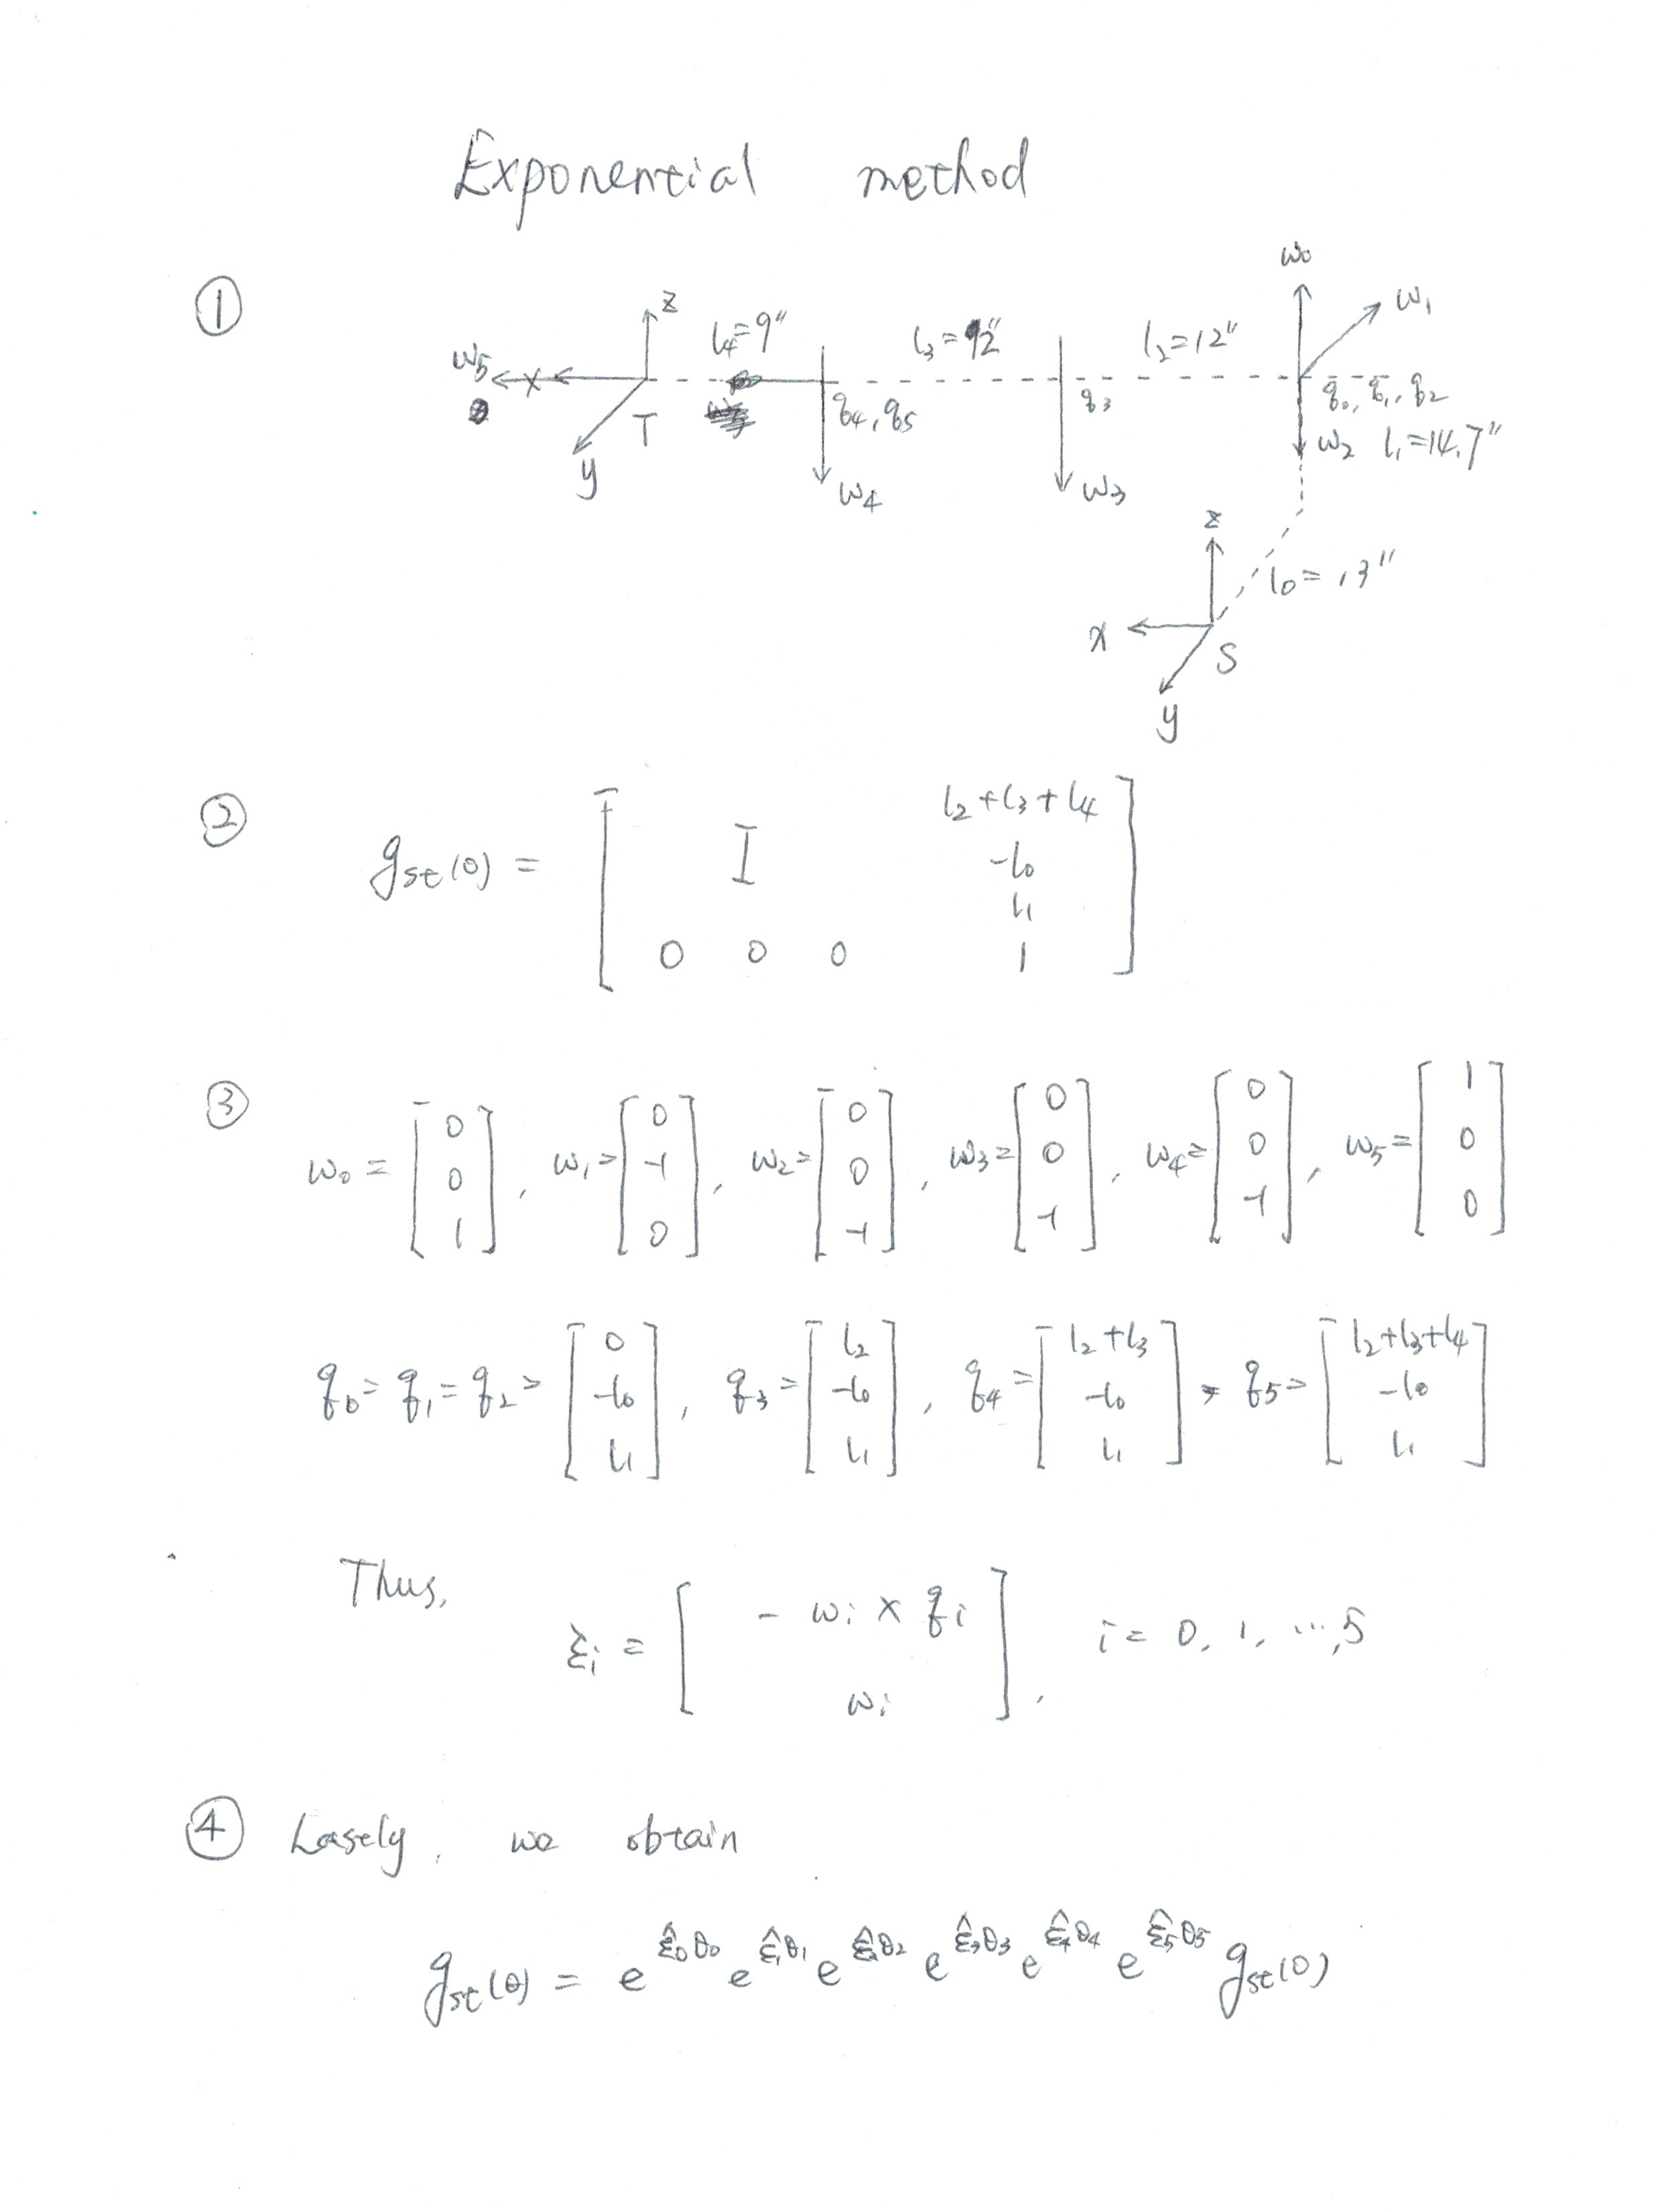 Exponential method
①
w₀
w₁
z
l₄=9" l₃=12" l₂=12"
w₅ x
T q₄,q₅ q₃ q₀, q₁, q₂
y w₄ w₃ w₂ l₁=14.7"
z
l₀= 13"
x S
y
②
g_st(0) = [ I l₂+l₃+l₄
-l₀
l₁
0 0 0 1 ]
③
w₀ = [0 0 1], w₁= [0 -1 0], w₂= [0 0 -1], w₃= [0 0 -1], w₄= [0 0 -1], w₅= [1 0 0]
q₀= q₁= q₂= [0 -l₀ l₁], q₃= [l₂ -l₀ l₁], q₄= [l₂+l₃ -l₀ l₁], q₅= [l₂+l₃+l₄ -l₀ l₁]
Thus,
ξᵢ = [ - wᵢ × qᵢ
wᵢ ], i = 0, 1, ...,5
④ Lasely, we obtain
g_st(θ) = e^ξ̂₀θ₀ e^ξ̂₁θ₁ e^ξ̂₂θ₂ e^ξ̂₃θ₃ e^ξ̂₄θ₄ e^ξ̂₅θ₅ g_st(0)